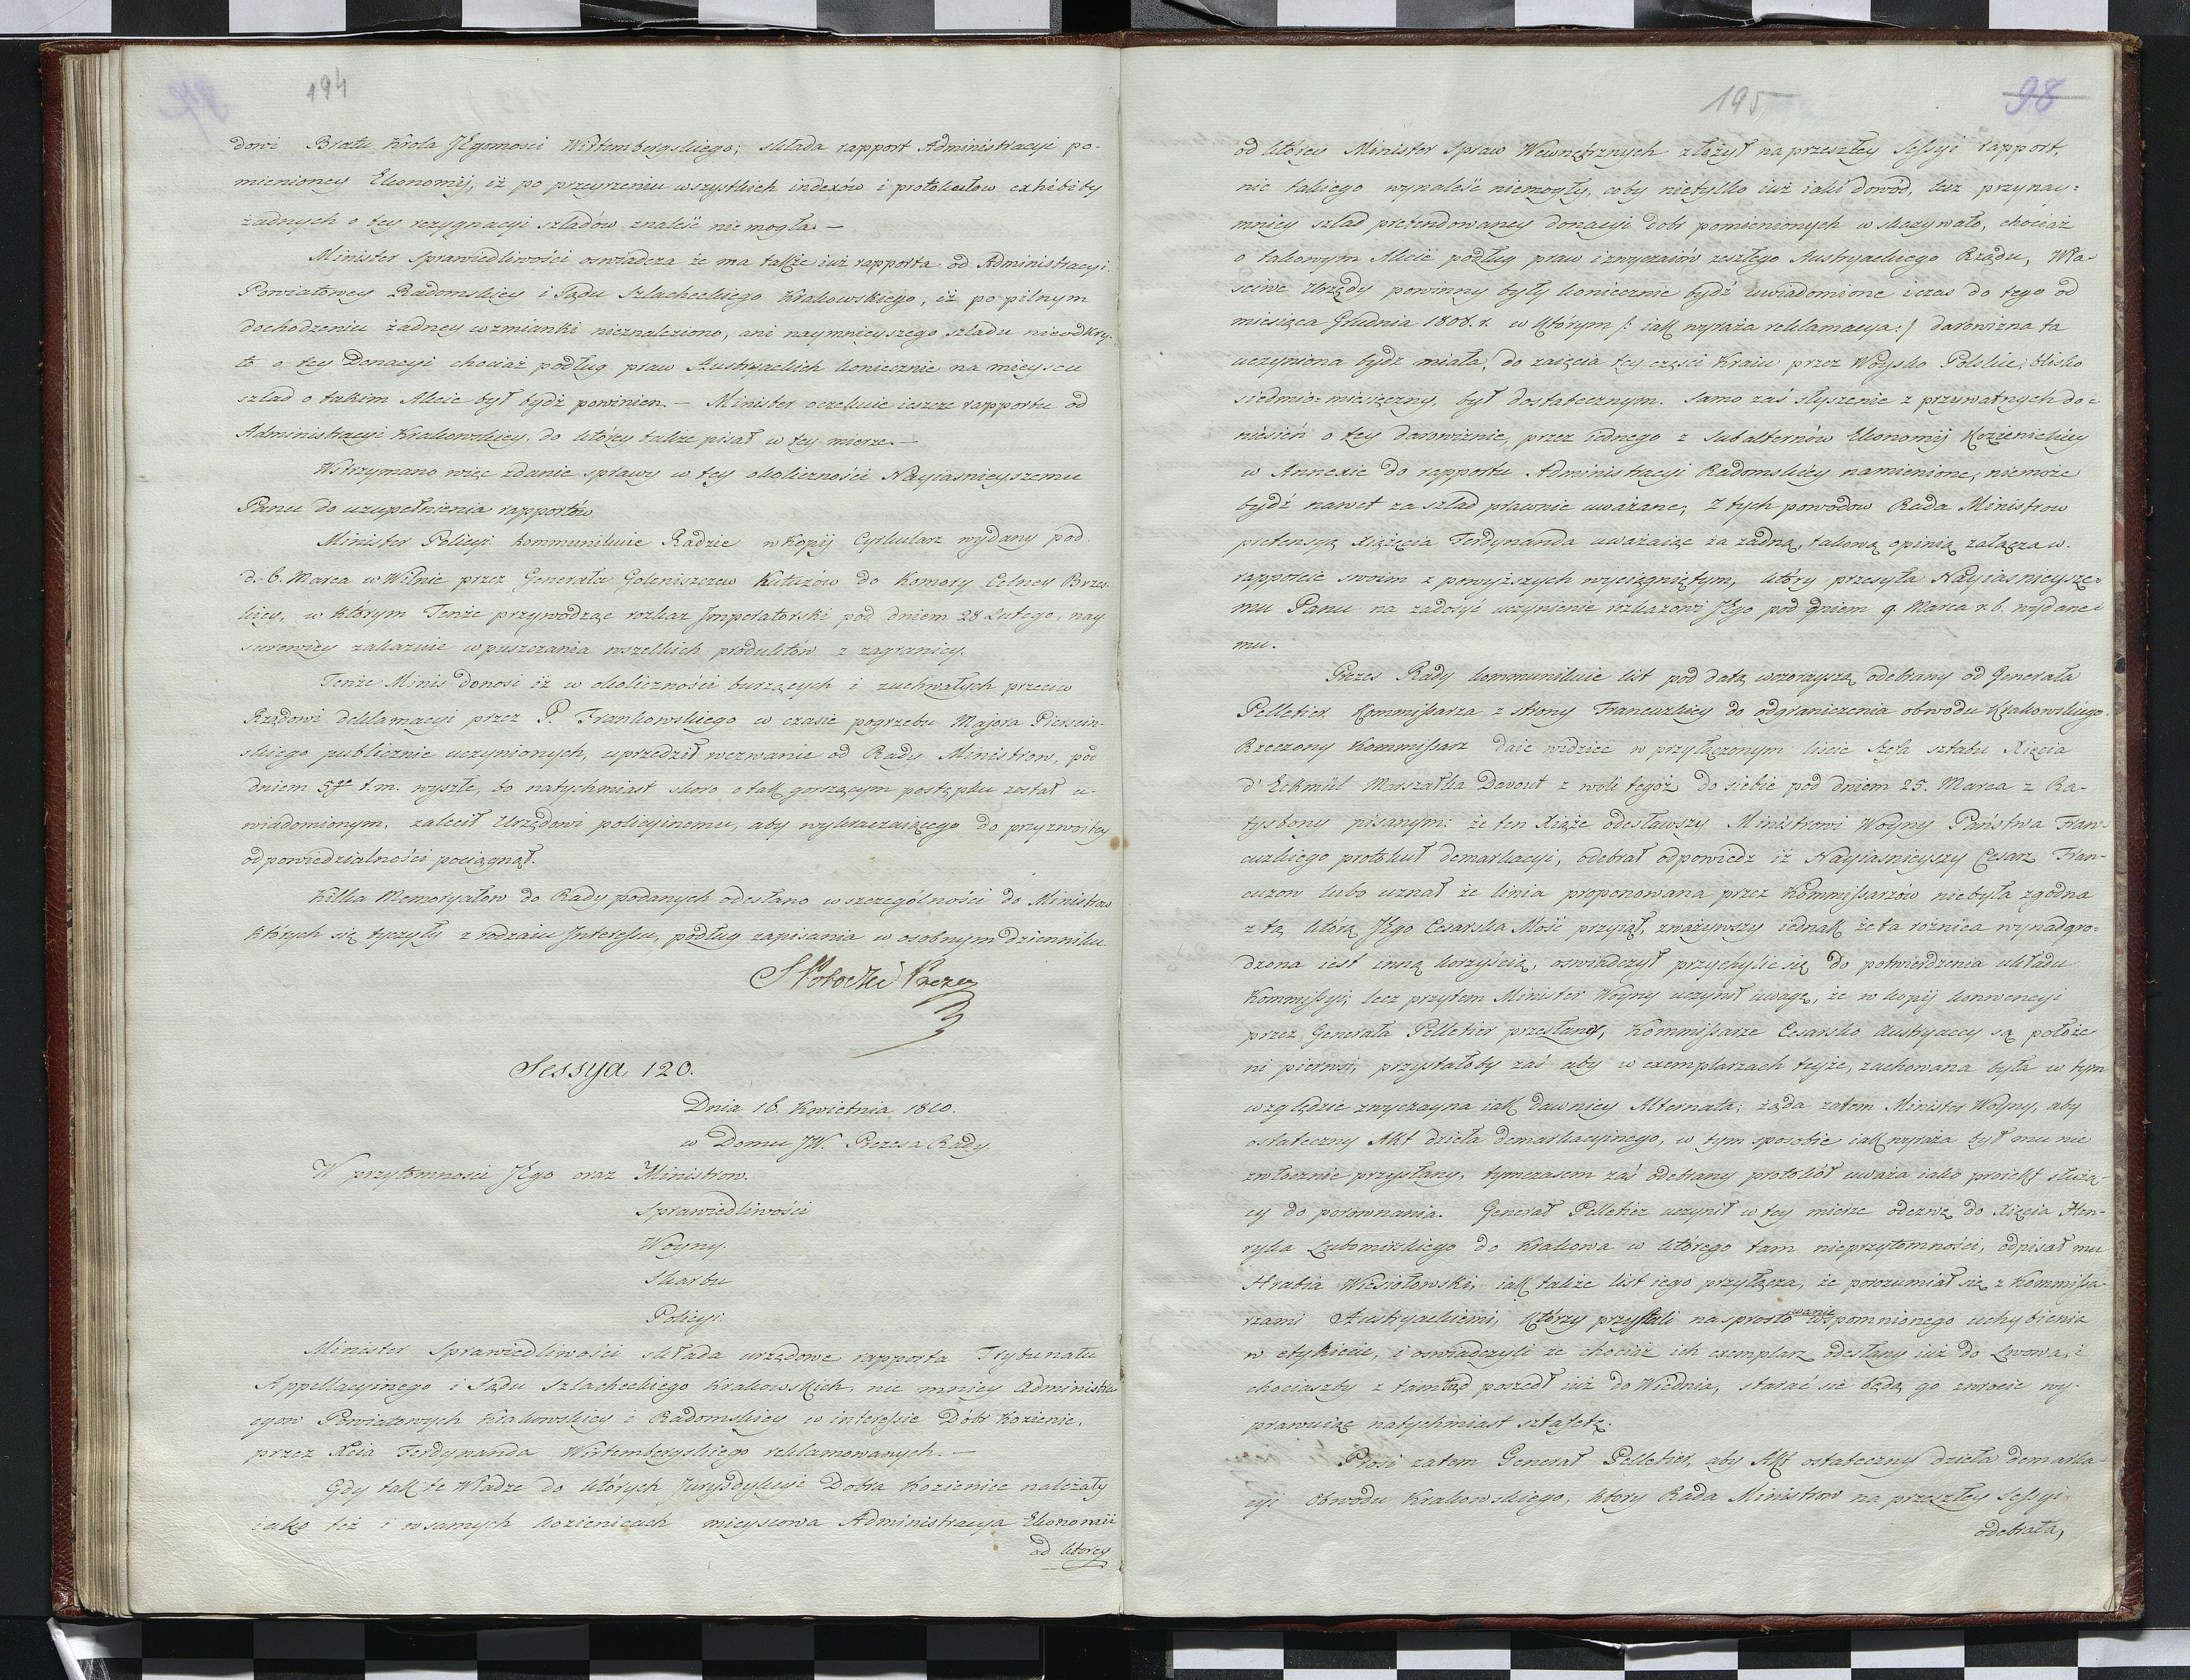 194
dowi Bratu Krola JEgomosci Wirtembergskiego; składa rapport Administracyi po-
mienioney Ekonomij, iż po przeyrzeniu wszystkich indexów i protokułow exhibity
żadnych o tey rezygnacyi szladów znaleść nie mogła. —
Minister Sprawiedliwości oswiadcza że ma także iuż rapporta od Administracyi
Powiatowey Radomskiey i Sądu Szlacheckiego Krakowskiego, iż po pilnym
dochodzeniu żadney wzmianki nieznaleziono, ani naymnieyszego szladu nieodkry-
to o tey Donacyi chociaż podług praw Austryackich koniecznie na mieyscu
szlad o takim Akcie był bydź powinien. — Minister oczekuie ieszcze rapportu od
Administracyi Krakowskiey, do którey także pisał w tey mierze. —
Wstrzymano więc zdanie sprawy w tey okoliczności Nayiasnieyszemu
Panu do uzupełnienia rapportów
Minister Policyi kommunikuie Radzie w Kopij Cyrkularz wydany pod
d. 6. Marca w Wilnie przez Generała Goleniszczew Kutuzów do Komory Celney Brzes-
kiey, w którym Tenże przywodząc rozkaz Imperatorski pod dniem 28 Lutego, nay
surowiey zakazuie wpuszczania wszelkich produktów z zagranicy.
Tenże Minis donosi iż w okoliczności burzących i zuchwałych przeciw
Rządowi deklamacyi przez P. Frankowskiego w czasie pogrzebu Majora Piersciń-
skiego publicznie uczynionych, uprzedził wezwanie od Rady Ministrow, pod
dniem 5go t.m. wyszłe, bo natychmiast skoro o tak gorszącym postępku został u-
wiadomionym, zalecił Urzędowi policyinemu, aby wykraczaiącego do przyzwoitey
odpowiedzialności pociągnął.
Kilka Memoryałow do Rady podanych odesłano w szczególności do Ministrow
których się tyczyły z rodzaiu Interessu, podług zapisania w osobnym Dzienniku
S Potocki Prezes
Sessya 120.
Dnia 16. Kwietnia 1810.
w Domu JW. Prezesa Rady.
W przytomnosci JEgo oraz Ministrow.
Sprawiedliwości
Woyny.
Skarbu
Policyi.
Minister Sprawiedliwości składa urzędowe rapporta Trybunału
Appellacyinego i Sądu Szlacheckiego Krakowskich, nie mniey Administra-
cyow Powiatowych Krakowskiey i Radomskiey w interessie Dóbr Kozienic,
przez Xcia Ferdynanda Wirtembergskiego reklamowanych. —
Gdy tak te Władze do których Juryzdykcyi Dobra Kozienice należały
iako też i w samych Kozienicach mieyscowa Administracya Ekonomii
od ktorey
195
98
od którey Minister Spraw Wewnętrznych złożył na przeszłey Sessyi rapport,
nic takiego wynaleść niemogły, coby nietylko iuż iaki dowód, lecz przynay-
mniey szlad pretendowaney donacyi dobr pomienionych wskazywało, chociaż
o takowym Akcie podług praw i zwyczaiów zeszłego Austryackiego Rządu, Wła-
sciwe Urzędy powinny były koniecznie bydź uwiadomione i czas do tego od
miesiąca Grudnia 1808. r. w którym /: iak wyraża reklamacya :/ darowizna ta
uczyniona bydz miała, do zaięcia tey części Kraiu przez Woysko Polskie, blisko
siedmio-miesięczny, był dostatecznym. Samo zaś słyszenie z prywatnych do-
niesień o tey darowiznie, przez iednego z Subalternów Ekonomij Kozienickiey
w Annexie do rapportu Administracyi Radomskiey namienione, niemoże
bydź nawet za szlad prawnie uważane, Z tych powodow Rada Ministrow
pretensyą Xiążęcia Ferdynanda uważaiąc za żadną, takową opinią załącza w
rapporcie swoim z powyższych wyciągniętym, który przesyła Nayiasnieysze-
mu Panu na zadosyć uczynienie rozkazowi JEgo pod dniem 9. Marca r. b. wydane-
mu.
Prezes Rady kommunikuie list pod datą wczorayszą odebrany od Generała
Pelletier Kommissarza z strony Francuzkiey do odgraniczenia obwodu Krakowskiego.
Rzeczony Kommissarz daie widzieć w przyłączonym liście Szefa sztabu Xięcia
d'Eckmül Marszałka Davout z woli tegoż do siebie pod dniem 25. Marca z Ra-
tysbony pisanym: że ten Xiąże odesławszy Ministrowi Woyny Państwa Fran-
cuzkiego protokuł demarkacyi, odebrał odpowiedz iż Nayiasnieyszy Cesarz Fran-
cuzow lubo uznał że linia proponowana przez Kommissarzów niebyła zgodna
z tą którą JEgo Cesarska Mość przyiął, zważywszy iednak że ta rożnica wynadgro-
dzona iest inną korzyścią, oswiadczył przychylić się do potwierdzenia układu
Kommissyi; lecz przytem Minister Woyny uczynił uwagę, że w kopij konwencyi
przez Generała Pelletier przesłaney, Kommissarze Cesarsko Austryaccy są położe-
ni pierwsi, przystałoby zaś aby w exemplarzach teyże, zachowana była w tym
względzie zwyczayna iak dawniey Alternata; żąda zatem Minister Woyny, aby
ostateczny Akt dzieła demarkacyinego, w tym sposobie iak wyraża był mu nie
zwłocznie przysłany, tymczasem zaś odebrany protokół uważa iako proiekt służą-
cy do porównania. Generał Pelletier uczynił w tey mierze odezwę do Xięcia Hen-
ryka Lubomirskiego do Krakowa w którego tam nieprzytomności, odpisał mu
Hrabia Wiesiołowski, iak także list iego przyłącza, że porozumiał się z Kommissa-
rzami Austryackiemi, którzy przystali na sprostowanie wspomnionego uchybienia
w etykiecie, i oswiadczyli że chociaż ich exemplarz odesłany iuż do Lwowa, i
chociaszby z tamtąd poszedł iuż do Wiednia, starać się będą go zwrocic wy-
prawuiąc natychmiast sztafetę.
Prosi zatem Generał Pelletier, aby Akt ostateczny dzieła demarka-
cyi Obwodu Krakowskiego, ktory Rada Ministrow na przeszłey Sessyi
odebrała,